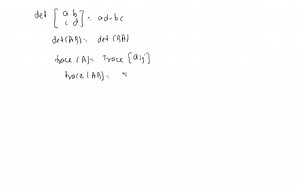 det [a b
c d] = ad-bc
det(AB) = det(BA)
trace(A) = Trace [aij]
trace(AB) =